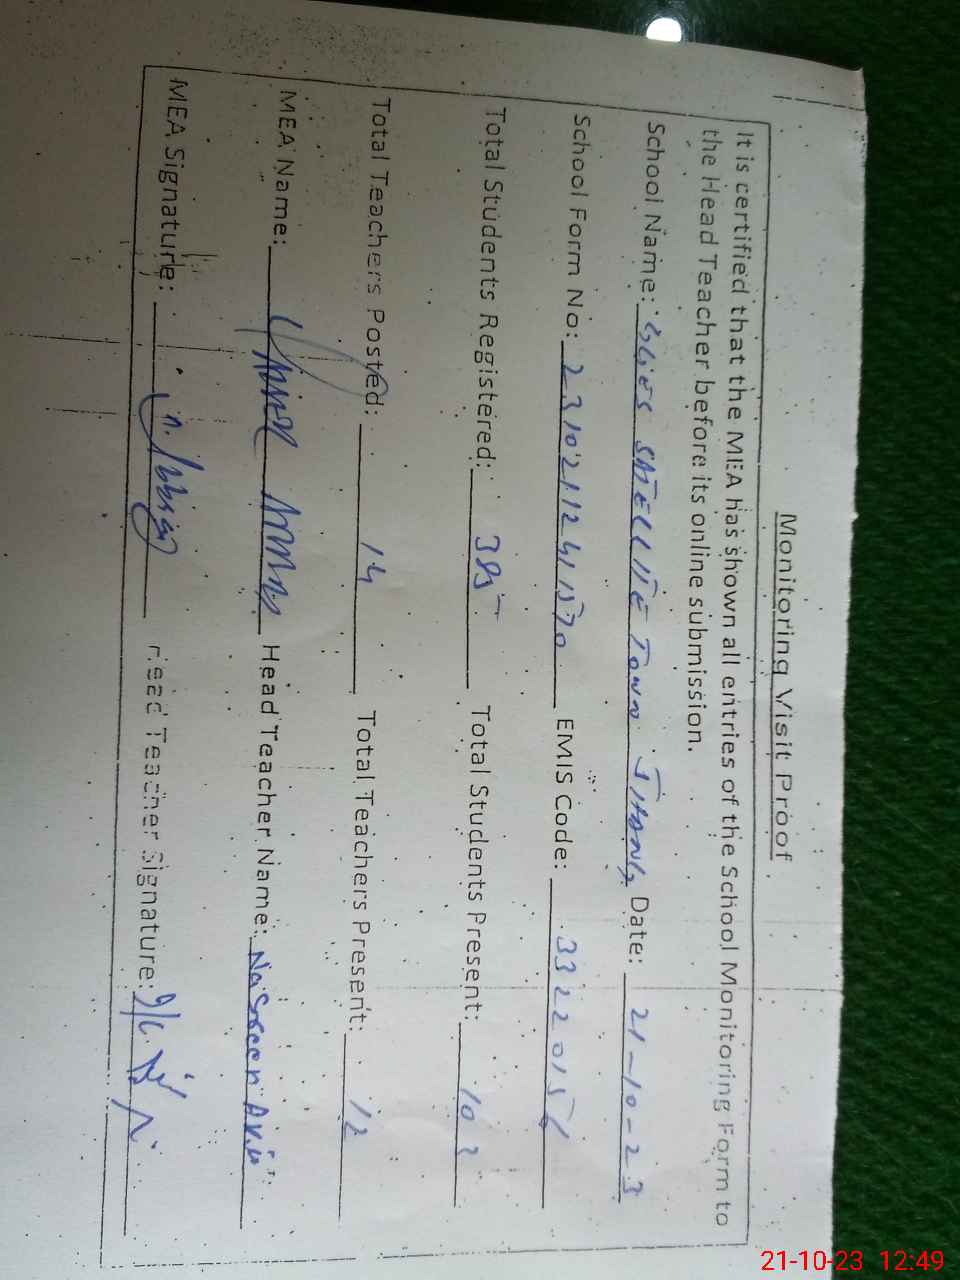 Monitoring Visit Proof
It is certified that the MEA has shown all entries of the School Monitoring Form to
the Head Teacher before its online submission.
School Name: GGES SATELLITE Town Jhang Date: 21-10-23
School Form No: EMIS Code:
Total Students Registered: 385 Total Students Present: 102
Total Teachers Posted: 14 Total Teachers Present: 12
MEA Name: Head Teacher Name: Nasreen
MEA Signature: Head Teacher Signature:
21-10-23 12:49